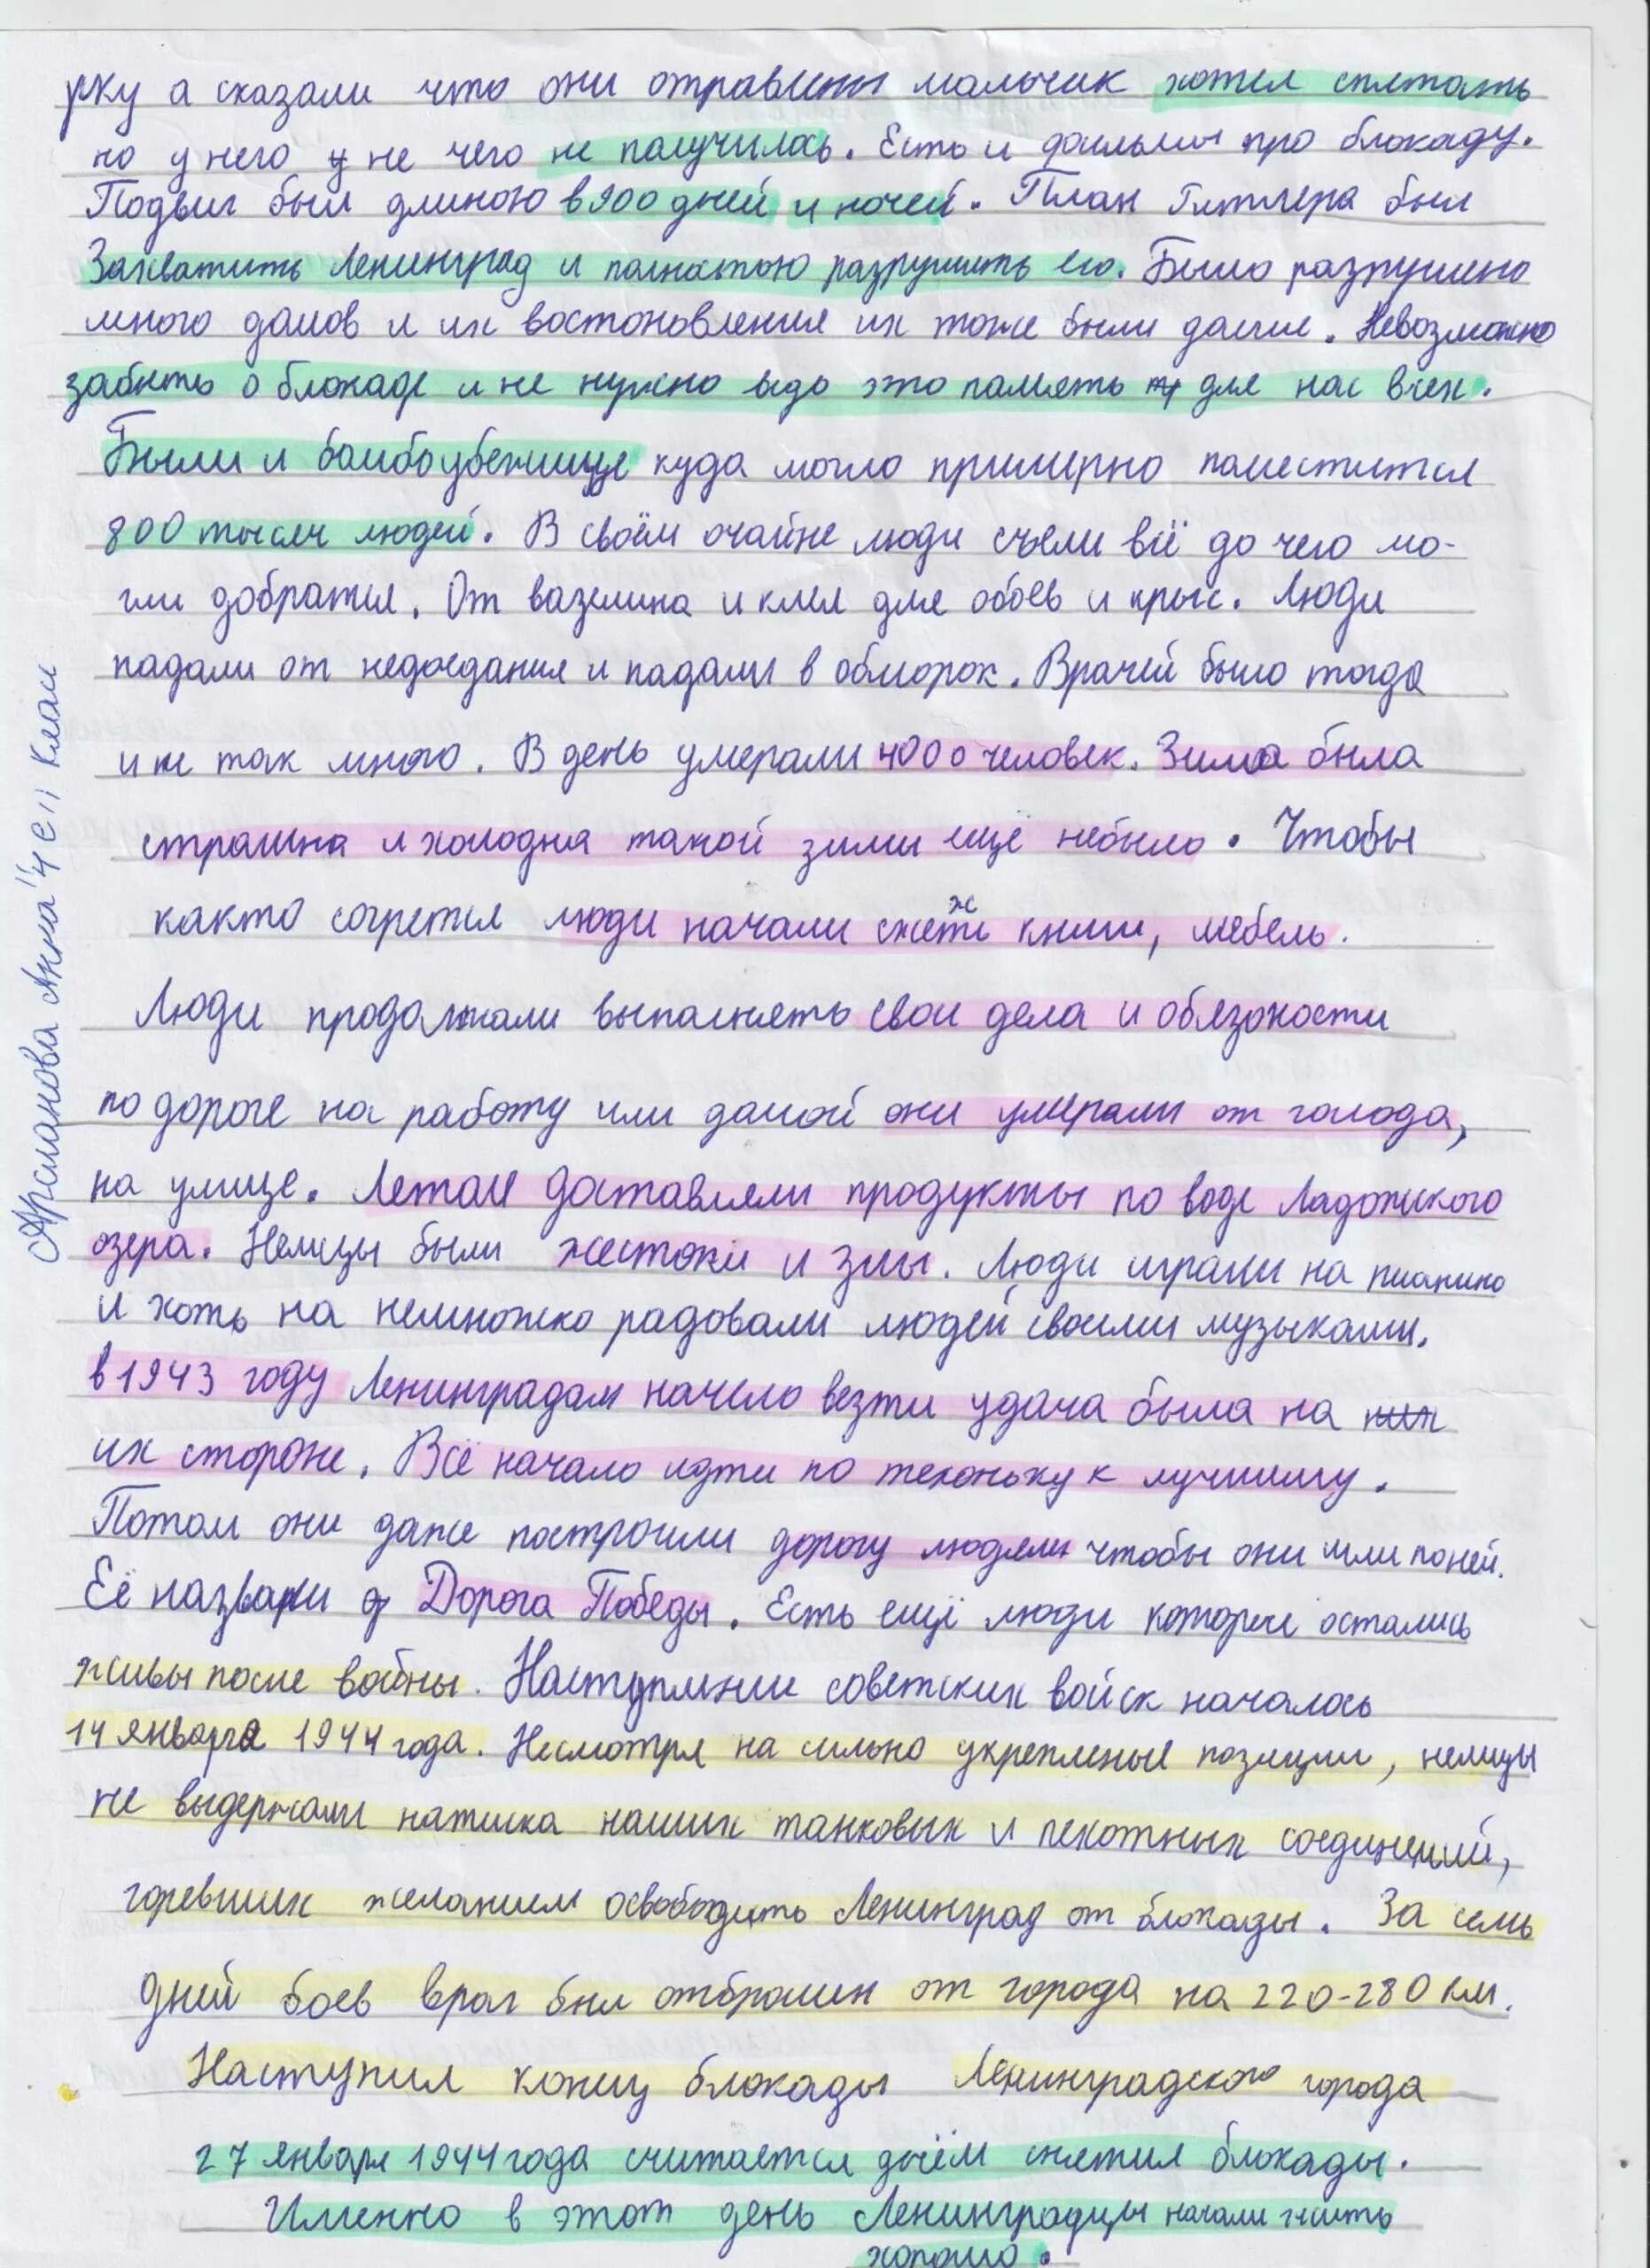 рку а сказали что они отравит мальчик хотел спртать
но у него у не чего не палучилось. Есть и фильмы про блокаду.
Подвиг был длиною в 900 дней и ночей. План Гитлера был
Захватить Ленинград и полностью разрушить его. Было разрушено
много домов и их востоновления их тоже были долгие. Невозможно
забыть о блокаде и не нужно ведь это память для нас всех.
Были и бомбоубежище куда могло примерно поместится
800 тысяч людей. В своём очайне люди съели всё до чего мо-
гли добратся. От вазелина и клея для обоев и крыс. Люди
падали от недоедания и падали в обморок. Врачей было тогда
и не так много. В день умерали 4000 человек. Зима была
страшна и холодна такой зимы ещё небыло. Чтобы
както согрется люди начали сжеть книги, мебель.
Люди продолжали выполнять свои дела и обязоности
по дороге на работу или домой они умерали от голода,
на улице. Летом доставляли продукты по воде Ладожского
озера. Немцы были жестоки и злы. Люди играли на пианино
и хоть на немножко радовали людей своими музыками.
в 1943 году Ленинградам начело везти удача была на них
их стороне. Всё начало идти по техоньку к лучшему.
Потом они даже построили дорогу людям чтобы они шли поней.
Её назвали Дорога Победы. Есть ещё люди которые остались
живы после войны. Наступление советских войск началось
14 января 1944 года. Несмотря на сильно укрепленые позиции, немцы
не выдержали натиска наших танковых и пехотных соединений,
горевших желанием освободить Ленинград от блокады. За семь
дней боев враг был отброшен от города на 220-280 км.
Наступил концу блокады Ленинградского города
27 января 1944 года считается днём снятия блокады.
Именно в этот день Ленинградцы начали жить
хорошо.
Арсланова Анна "4 е" класс